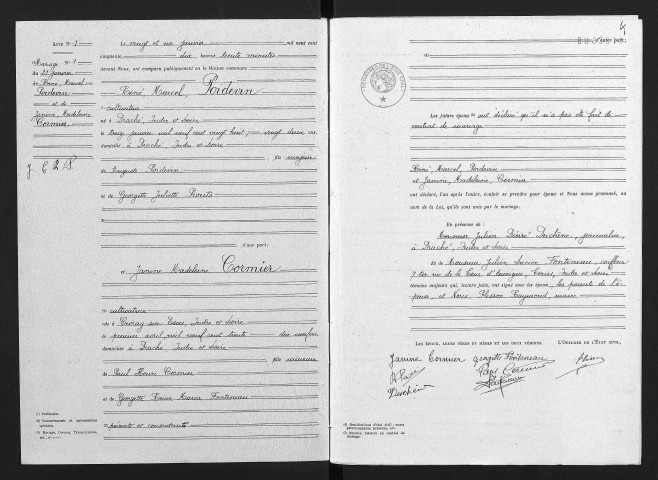 Acte N° 1
Mariage N° 1
du 21 Janvier
de René, Marcel
Pordevin
et de
Janine, Madeleine
Cormier
Le vingt et un janvier mil neuf cent
cinquante dix heures trente minutes
devant Nous, ont comparu publiquement en la Maison commune
René, Marcel Pordevin
cultivateur
né à Draché, Indre et Loire
le treize janvier mil neuf cent vingt huit, vingt deux ans,
domicilié à Draché, Indre et Loire
fils majeur
de Auguste Pordevin
et de Georgette Juliette
d'une part;
et Janine Madeleine Cormier
cultivatrice
née à Civray sur Esves, Indre et Loire
le premier avril mil neuf cent trente dix neuf ans
domiciliée à Draché, Indre et Loire
fille mineure
de Paul Henri Cormier
et de Georgette Marie Maria Fonteneau
présents et consentants
(1) Profession.
(2) Consentements et autorisations
(3) Mariage, Divorce, Transcriptions,
etc.
4
d'autre part;
Les futurs époux ont déclaré qu'il n'a pas été fait de
contrat de mariage
René, Marcel, Pordevin
et Janine, Madeleine, Cormier
ont déclaré, l'un après l'autre, vouloir se prendre pour époux et Nous avons prononcé, au
nom de la Loi, qu'ils sont unis par le mariage.
En présence de :
Monsieur Julien Désiré Duchêne, journalier,
à Draché, Indre et Loire
Et de Monsieur Julien Lucien Fonteneau, coiffeur
7 ter rue de la Tour d'Auvergne, Tours, Indre et Loire
témoins majeurs qui, lecture faite, ont signé avec les époux, les parents de l'é-
pouse et Nous, Plisson Raymond, maire
LES ÉPOUX, LEURS PÈRES ET MÈRES ET LES DEUX TÉMOINS,
L'OFFICIER DE L'ÉTAT CIVIL,
Janine Cormier georgette Fonteneau
Duchêne